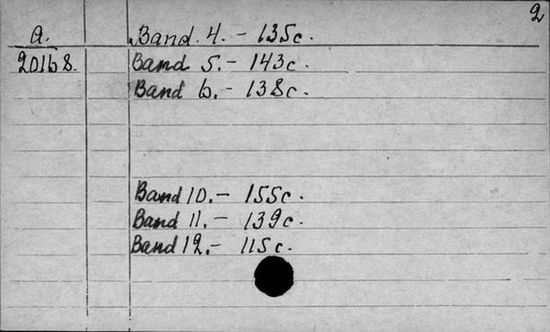 2
a. Band 4. - 135c.
20168. Band 5. - 143c.
Band 6. - 138c.
Band 10. - 155c.
Band 11. - 139c.
Band 12. - 115c.